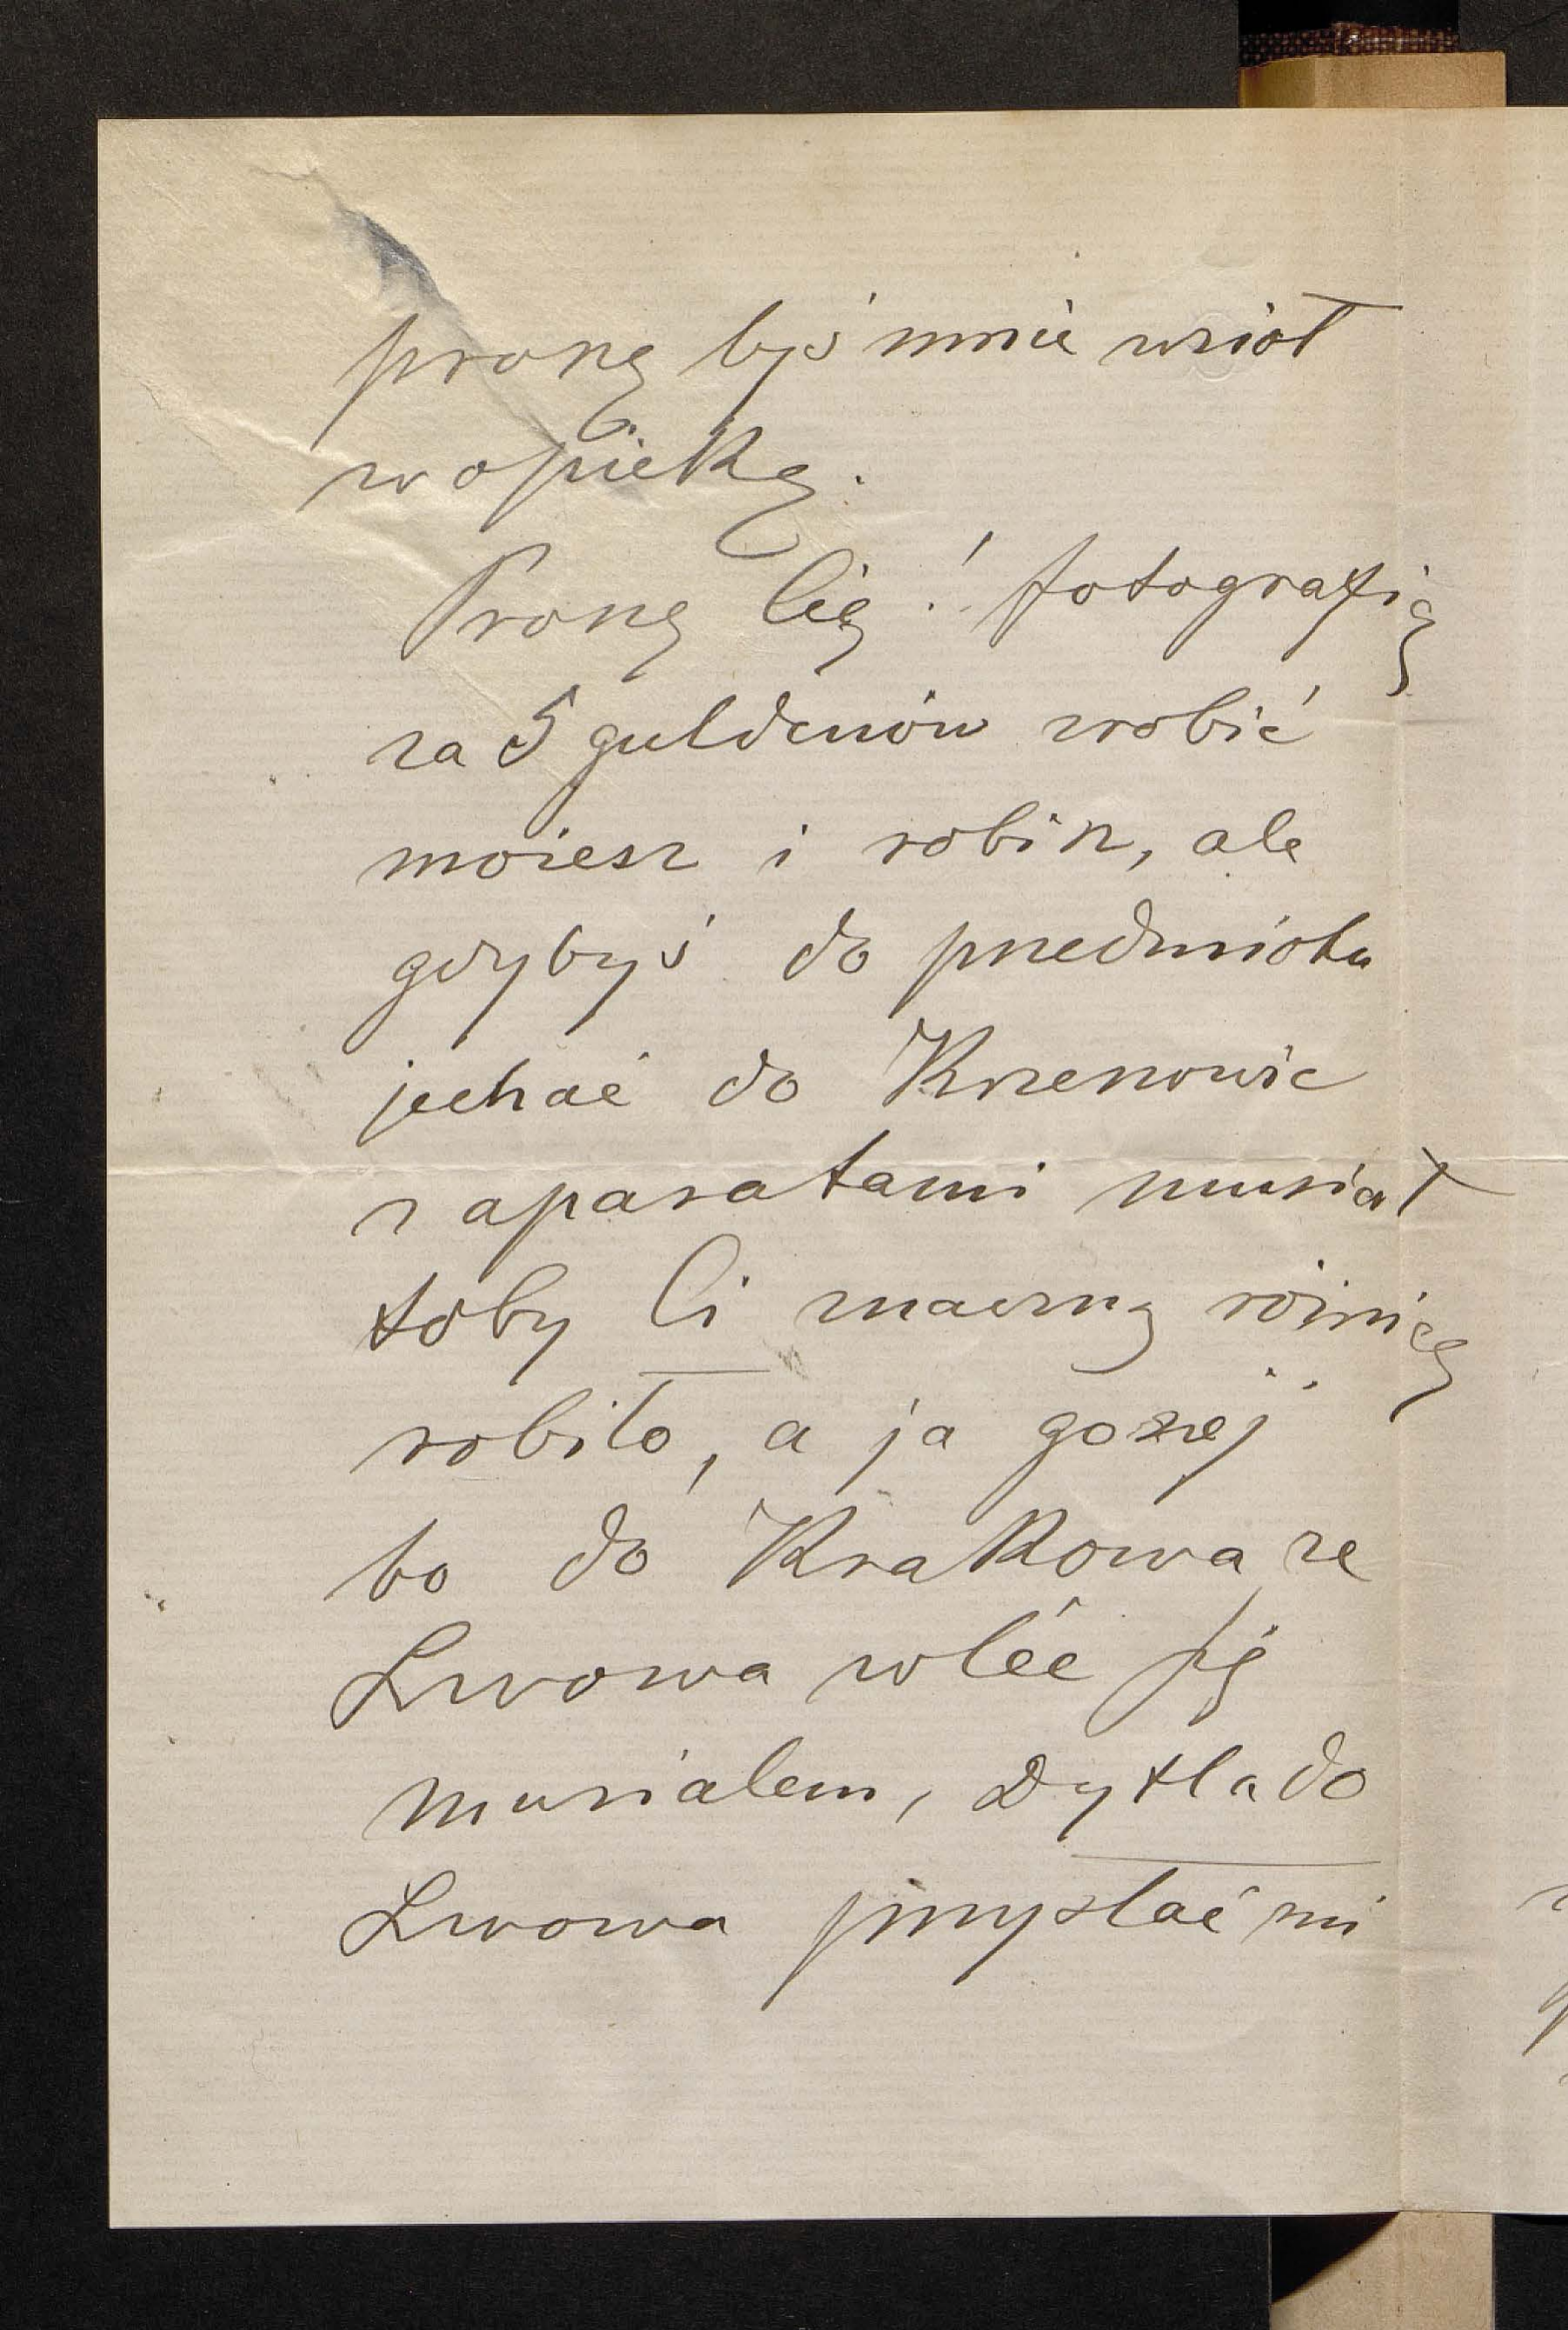 proszę byś mnie wziął
w opiekę.
Proszę Cię! fotografię
za 5 guldenów zrobić
możesz i robisz, ale
gdybyś do przedmiotu
jechać do Krzenowic
z aparatami musiał
toby Ci znaczną różnicę
robiło, a ja gorzej
bo do Krakowa ze
Lwowa wléc się
musiałem, Dytla do
Lwowa przysłać mi